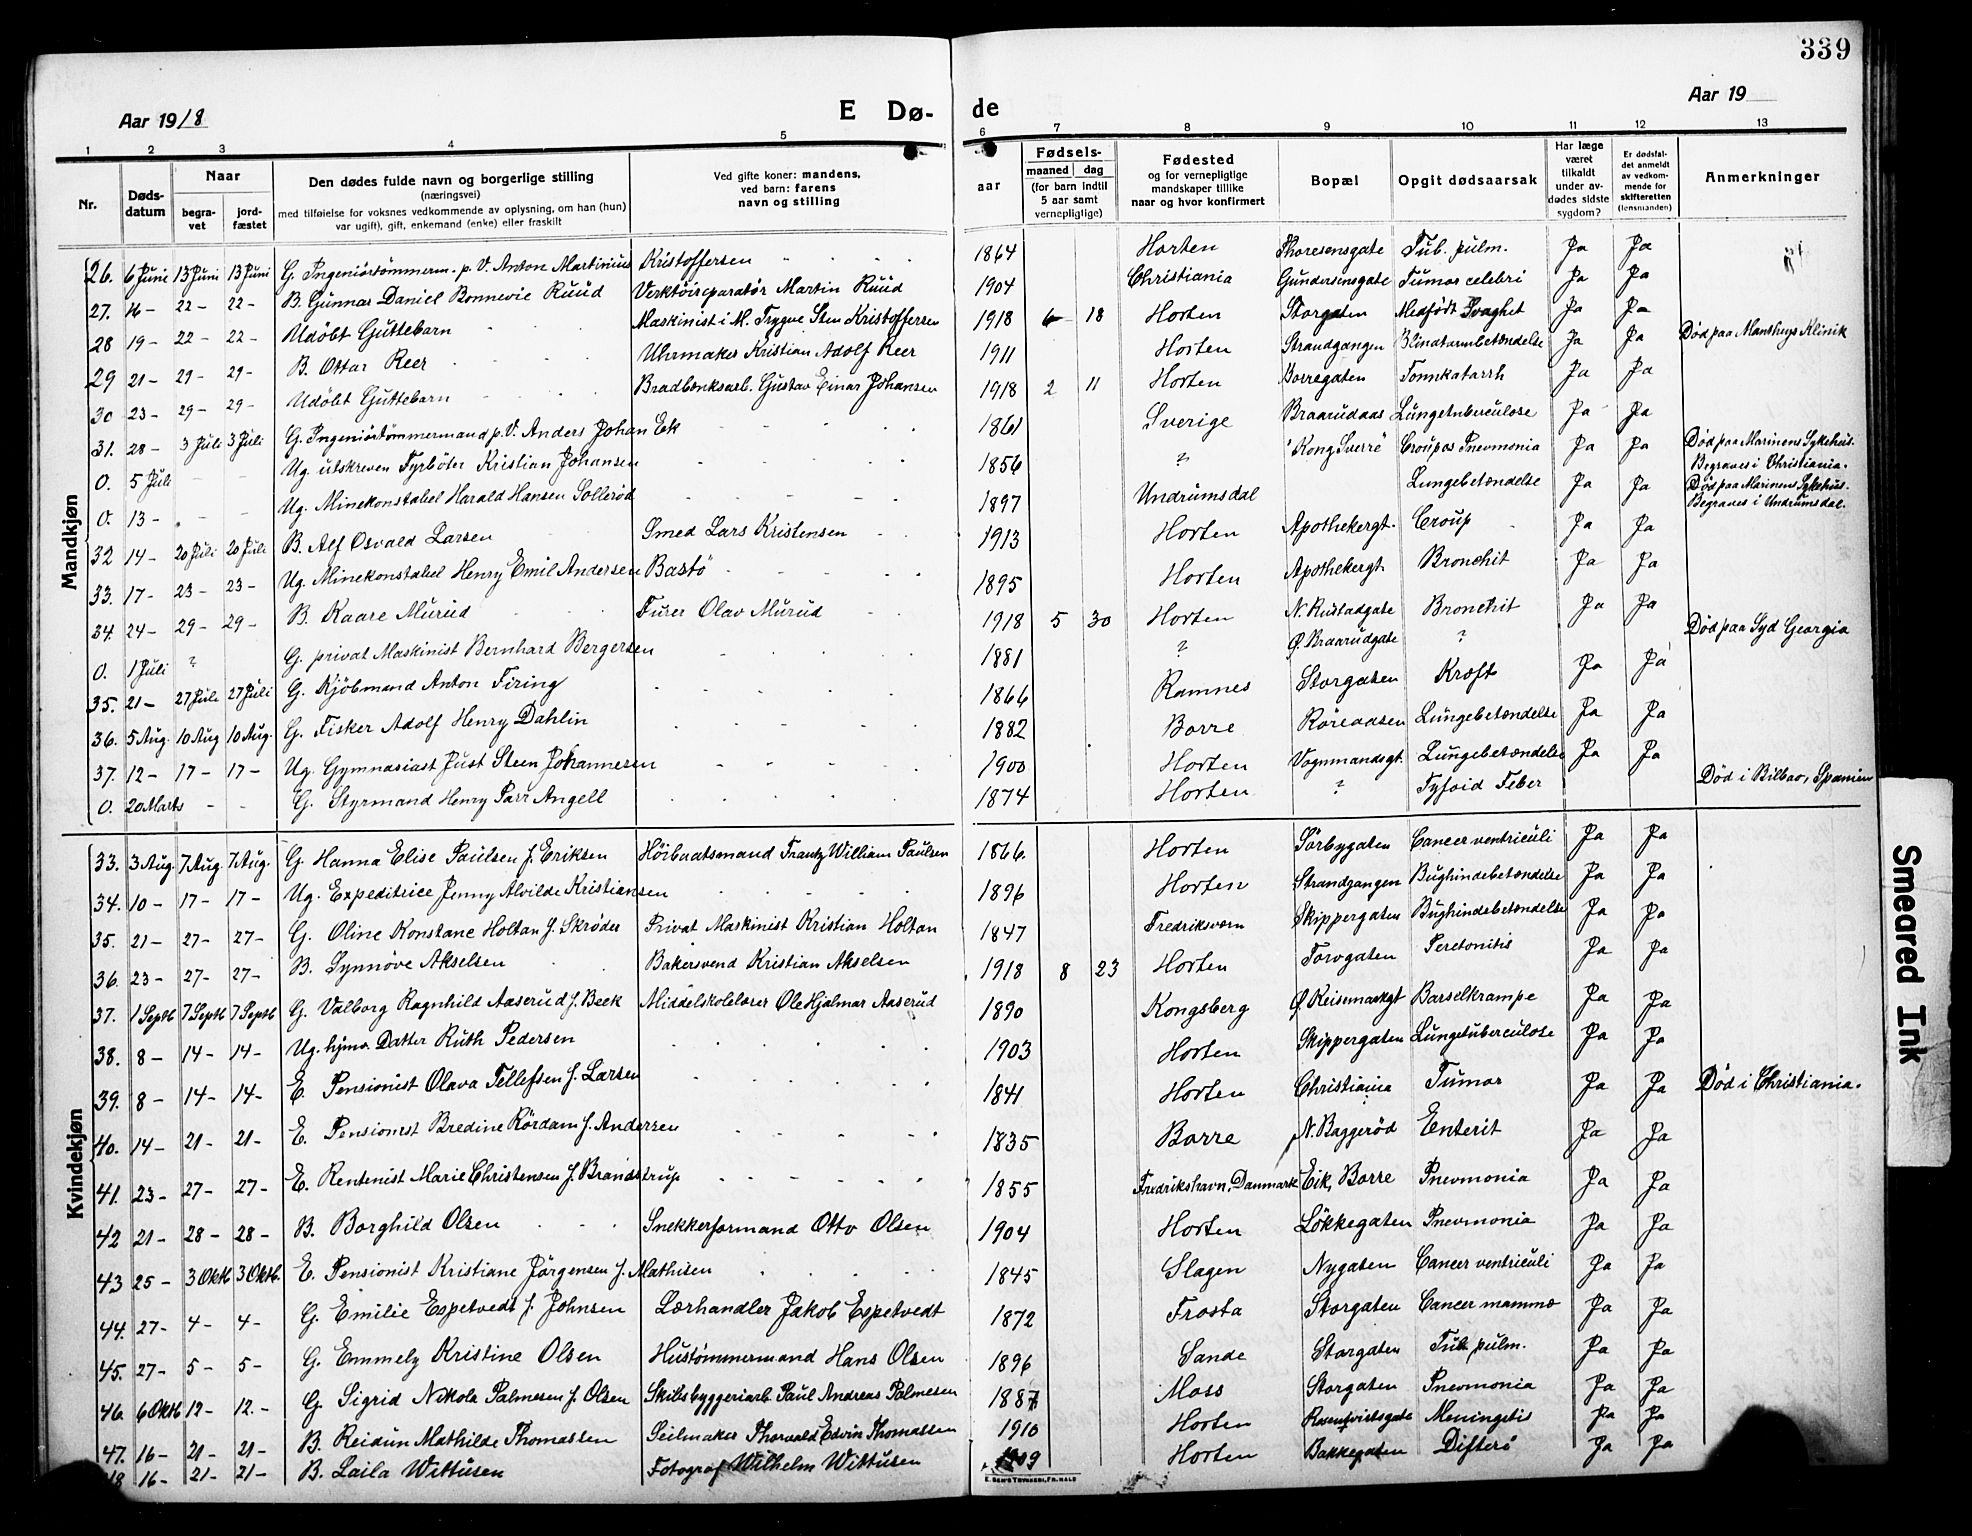 339
Aar 1918
E Dø-
de
Aar 19
1 2 3 4 5 6 7 8 9 10 11 12 13
Nr.
Døds-
datum
Naar
begra-
vet
jord-
fæstet
Den dødes fulde navn og borgerlige stilling
(næringsvei)
med tilføielse for voksnes vedkommende av oplysning, om han (hun)
var ugift), gift, enkemand (enke) eller fraskilt
Ved gifte koner: mandens,
ved barn: farens
navn og stilling
aar
Fødsels-
maaned dag
(for barn indtil
5 aar samt
vernepligtige)
Fødested
og for vernepligtige
mandskaper tillike
naar og hvor konfirmert
Bopæl
Opgit dødsaarsak
Har læge
været
tilkaldt
under av-
dødes sidste
sygdom?
Er dødsfal-
det anmeldt
av vedkom-
mende for
skifteretten
(lensmanden)
Anmerkninger
Mandkjøn
26. 6 Juni 13 Juni 13 Juni G. Ingeniörtömmerm. p. V. Anton Martinius Kristoffersen 1864 Horten Thoresensgate Tub. pulm. Ja Ja
27. 16 - 22 - 22 - B. Gunnar Daniel Bonnevie Ruud Verktöireparatör Martin Ruud 1904 Christiania Gundersensgate Tumor celebri Ja Ja
28 19 - 22 - 22 - Udöbt Guttebarn Maskinist i M. Trygve Sten Kristoffersen 1918 6 18 Horten Storgaten Medfødt Svaghet Ja Ja
29 21 - 29 - 29 - B. Ottar Reer Uhrmaker Kristian Adolf Reer 1911 Horten Strandgangen Blindtarmbetændelse Ja Ja Död paa Mantheys Klinik
30 23 - 29 - 29 - Udöbt Guttebarn Bradbænksarb. Gustav Einar Johansen 1918 2 11 Horten Borregaten Tonnkatarrh Ja Ja
31. 28 - 3 Juli 3 Juli G. Ingeniörtömmermand p. V. Anders Johan Ek 1861 Sverige Braarudaas Lungetuberculose Ja Ja
0. 5 Juli - - Ug. utskreven Fyrböter Kristian Johansen 1856 ? "Kong Sverre" Croupos Pnevmonia Ja Ja Död paa Marinens Sykehus. Begraves i Christiania.
0. 13 - - - Ug. Minekonstabel Harald Hansen Sollerød 1897 Undrumsdal Lungebetændelse Ja Ja Död paa Marinens Sykehus. Begraves i Undrumsdal.
32 14 - 20 Juli 20 Juli B. Alf Osvald Larsen Smed Lars Kristensen 1913 Horten Apothekergt. Croup Ja Ja
33. 17 - 23 - 23 - Ug. Minekonstabel Henry Emil Andersen Bastö 1895 Horten Apothekergt. Bronchit Ja Ja
34. 24 - 29 - 29 - B. Kaare Murud Furer Olav Murud 1918 5 30 Horten N. Rustadgate Bronchit Ja Ja
0. 1 Juli ? G. privat Maskinist Bernhard Bergersen 1881 ? Ø. Braarudgate ? Död paa Syd Georgia
35. 21 - 27 Juli 27 Juli G. Kjöbmand Anton Firing 1866 Ramnes Storgaten Kræft Ja Ja
36. 5 Aug. 10 Aug 10 Aug. G. Fisker Adolf Henry Dahlin 1882 Borre Röreaasen Lungebetændelse Ja Ja
37. 12 - 17 - 17 - Ug. Gymnasiast Just Steen Johannesen 1900 Horten Vognmandsgt. Lungebetændelse Ja Ja
0. 20 Marts - - G. Styrmand Henry Parr Angell 1874 Horten ? Tyfoid Feber Död i Bilbao, Spanien
Kvindekjøn
33. 3 Aug. 7 Aug. 7 Aug. G. Hanna Elise Paulsen f. Eriksen Höibaatsmand Frantz William Paulsen 1866. Horten Sörbygaten Cancer ventriculi Ja Ja
34. 10 - 17 - 17 - Ug. Expeditrice Jenny Alvilde Kristiansen 1896 Horten Strandgangen Bughindebetændelse Ja Ja
35. 21 - 27 - 27 - G. Oline Konstane Holtan f. Skröder Privat Maskinist Kristian Holtan 1847 Fredriksværn Skippergaten Bughindebetændelse Ja Ja
36. 23 - 27 - 27 - B. Synnöve Akselsen Bakersvend Kristian Akselsen 1918 8 23 Horten Torvgaten Peretonitis Ja Ja
37. 1 Septb 7 Septb 7 Septb G. Valborg Ragnhild Aaserud f. Beck Middelskolelærer Ole Hjalmar Aaserud 1890 Kongsberg Ø. Keisemarkgt Barselkrampe Ja Ja
38. 8 - 14 - 14 - Ug. hjmv. Datter Ruth Pedersen 1903 Horten Skippergaten Lungetuberculose Ja Ja
39. 8 - 14 - 14 - E. Pensionist Olava Tellefsen f. Larsen 1841 Horten Christiania Tumor Ja Ja Död i Christiania.
40. 14 - 21 - 21 - E. Pensionist Bredine Rördam f. Andersen 1835 Borre N. Baggerød Enterit Ja Ja
41. 23 - 27 - 27 - E. Rentenist Marie Christensen f. Brandstrup 1855 Fredrikshavn, Danmark Eik, Borre Pnevmonia Ja Ja
42 21 - 28 - 28 - B. Borghild Olsen Snekkerformand Otto Olsen 1904 Horten Lökkegaten Pnevmonia Ja Ja
43 25 - 3 Oktb 3 Oktb. E. Pensionist Kristiane Jörgensen f. Mathisen 1845 Slagen Nygaten Cancer ventriculi Ja Ja
44. 27 - 4 - 4 - G. Emilie Espetvedt f. Johnsen Lærhandler Jakob Espetvedt 1872 Frosta Storgaten Cancer mammæ Ja Ja
45. 27 - 5 - 5 - G. Emmely Kristine Olsen Hustömmermand Hans Olsen 1896 Sande Storgaten Tub. pulm. Ja Ja
46. 6 Oktb 12 - 12. - G. Sigrid Nikola Palmesen f. Olsen Skibsbyggeriarb. Paul Andreas Palmesen 1887 Moss Storgaten Pnevmonia Ja Ja
47. 16 - 21 - 21 - B. Reidun Mathilde Thomassen Seilmaker Thorvald Edvin Thomassen 1910 Horten Meningetis Ja Ja
18 16 - 21 - 21 - B. Laila Wittusen Fotograf Wilhelm Wittusen 1909 Horten Bakkegaten Difteri Ja Ja
E. SEM'S TRYKKERI, FR.HALD
Smeared Ink